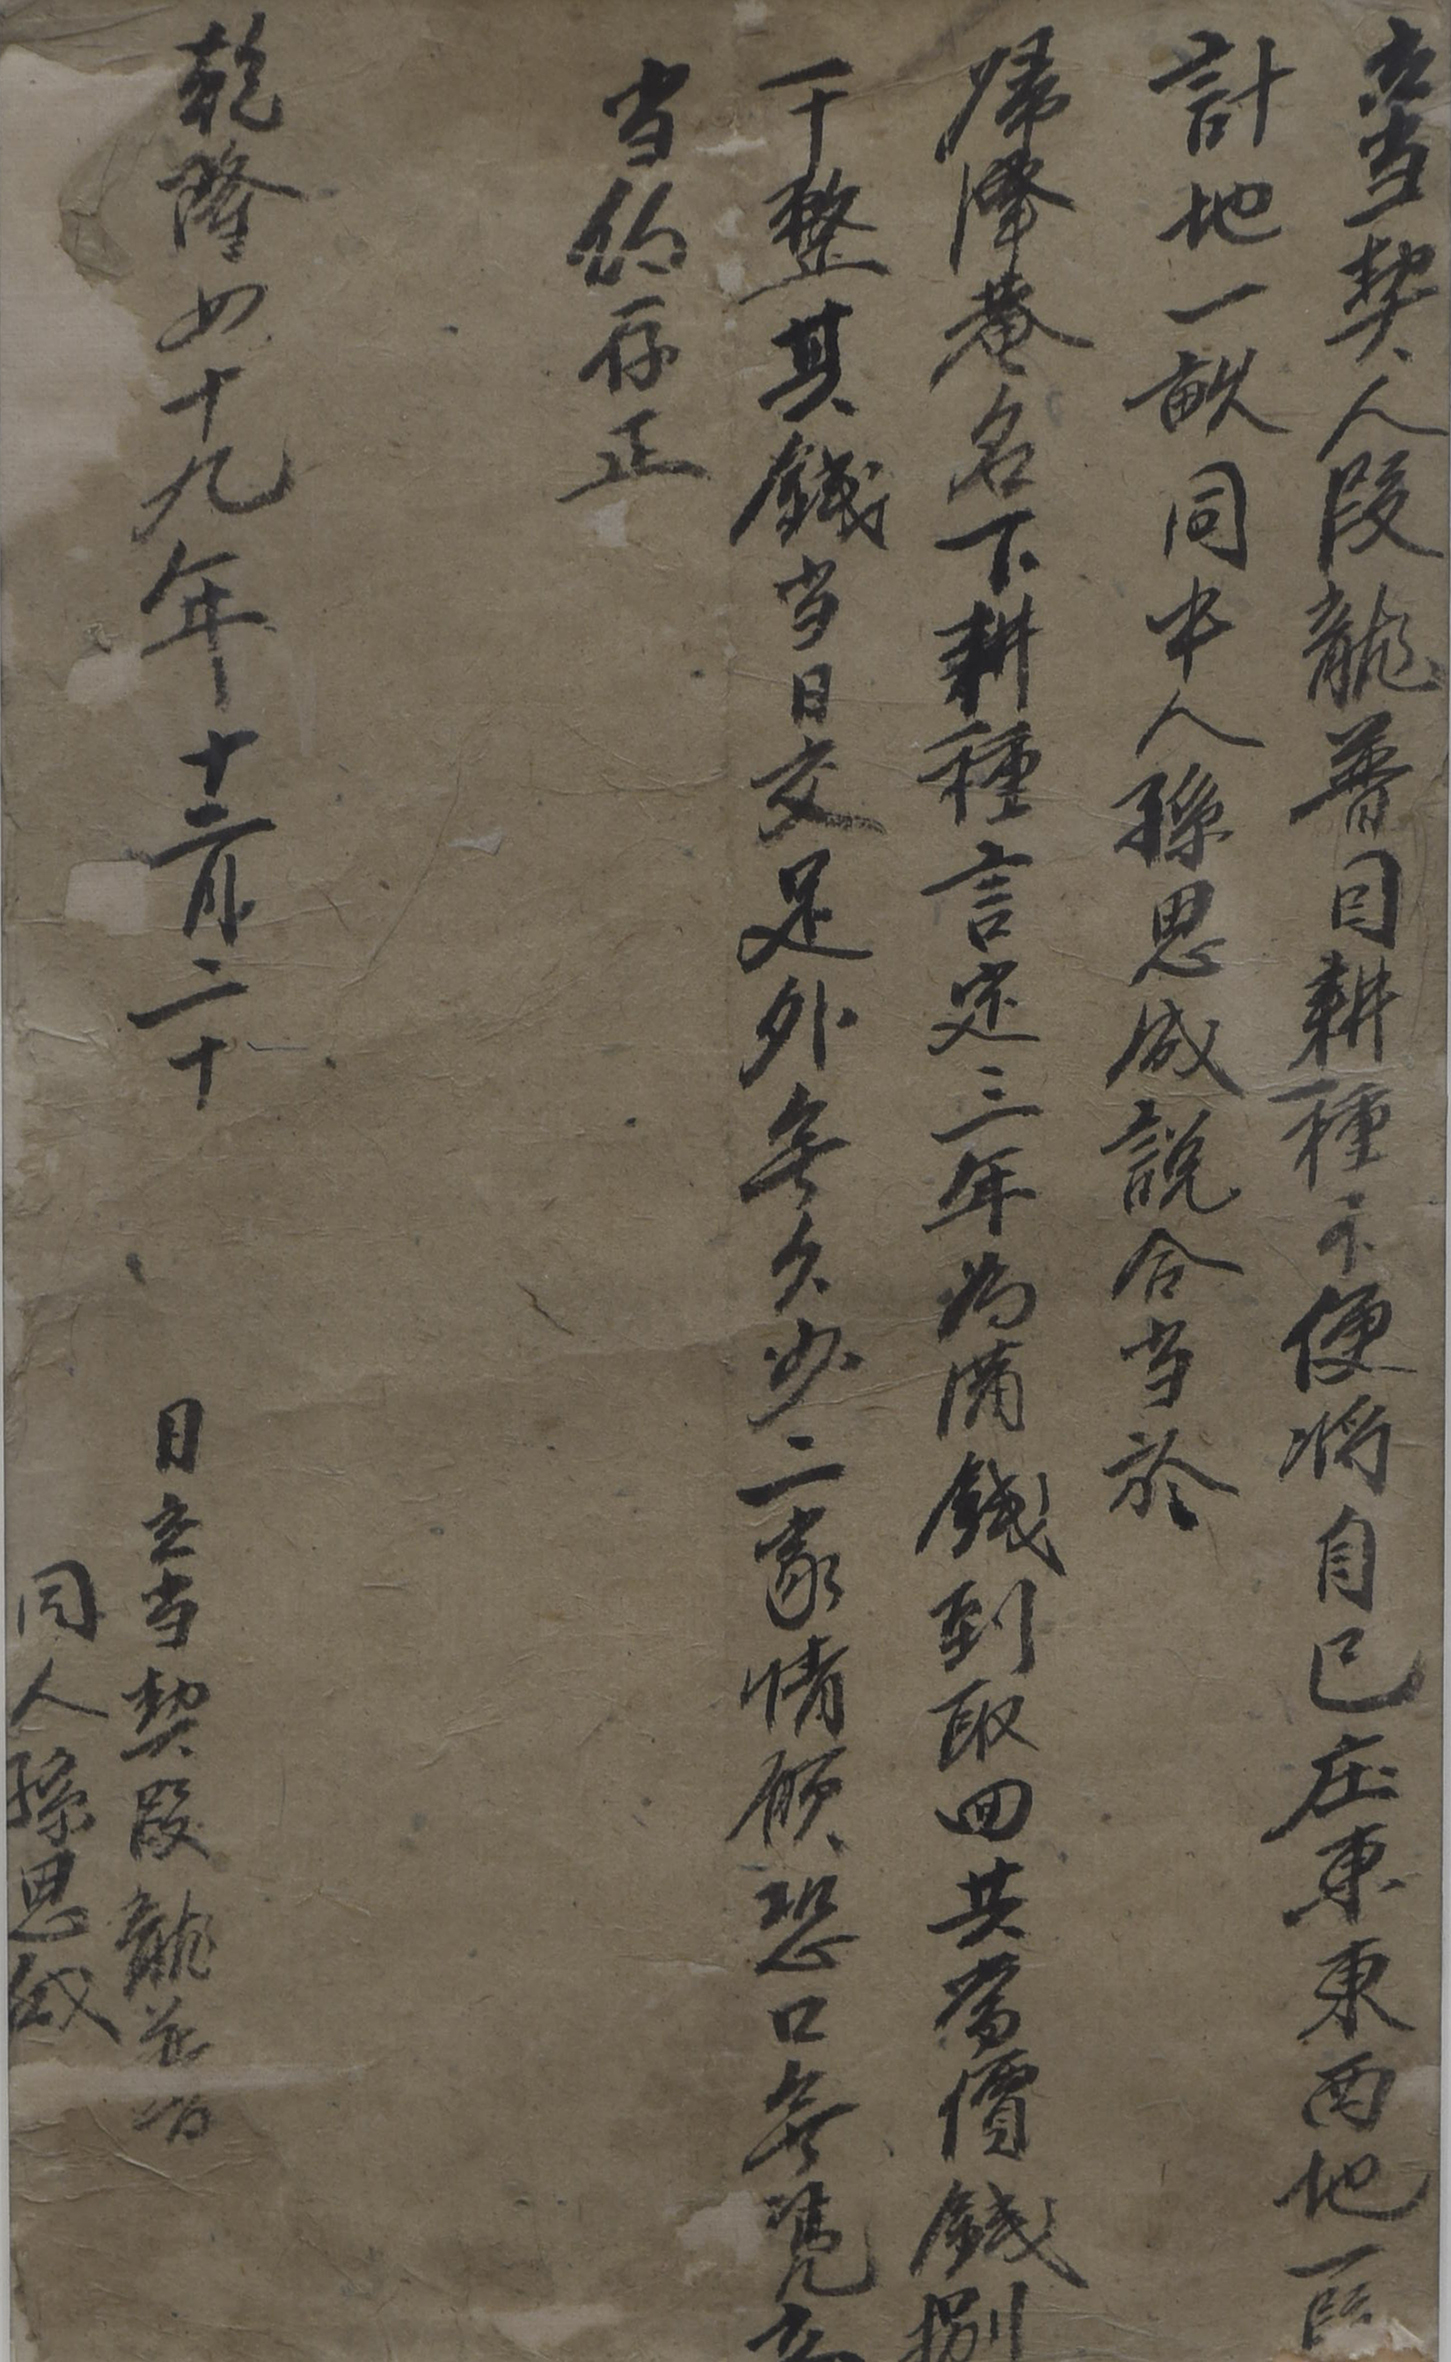 立当契人段龍普因耕種不便将自己庄東東西地一段
計地一畝同中人孫思成説合当於
帰降菴名下耕種言定三年為滿錢到取回共當價錢捌
千整其錢当日交足外無欠少二家情願恐口無凭立
当約存正
乾隆四十九年十二月二十
日立当契段龍普
同人孫思成